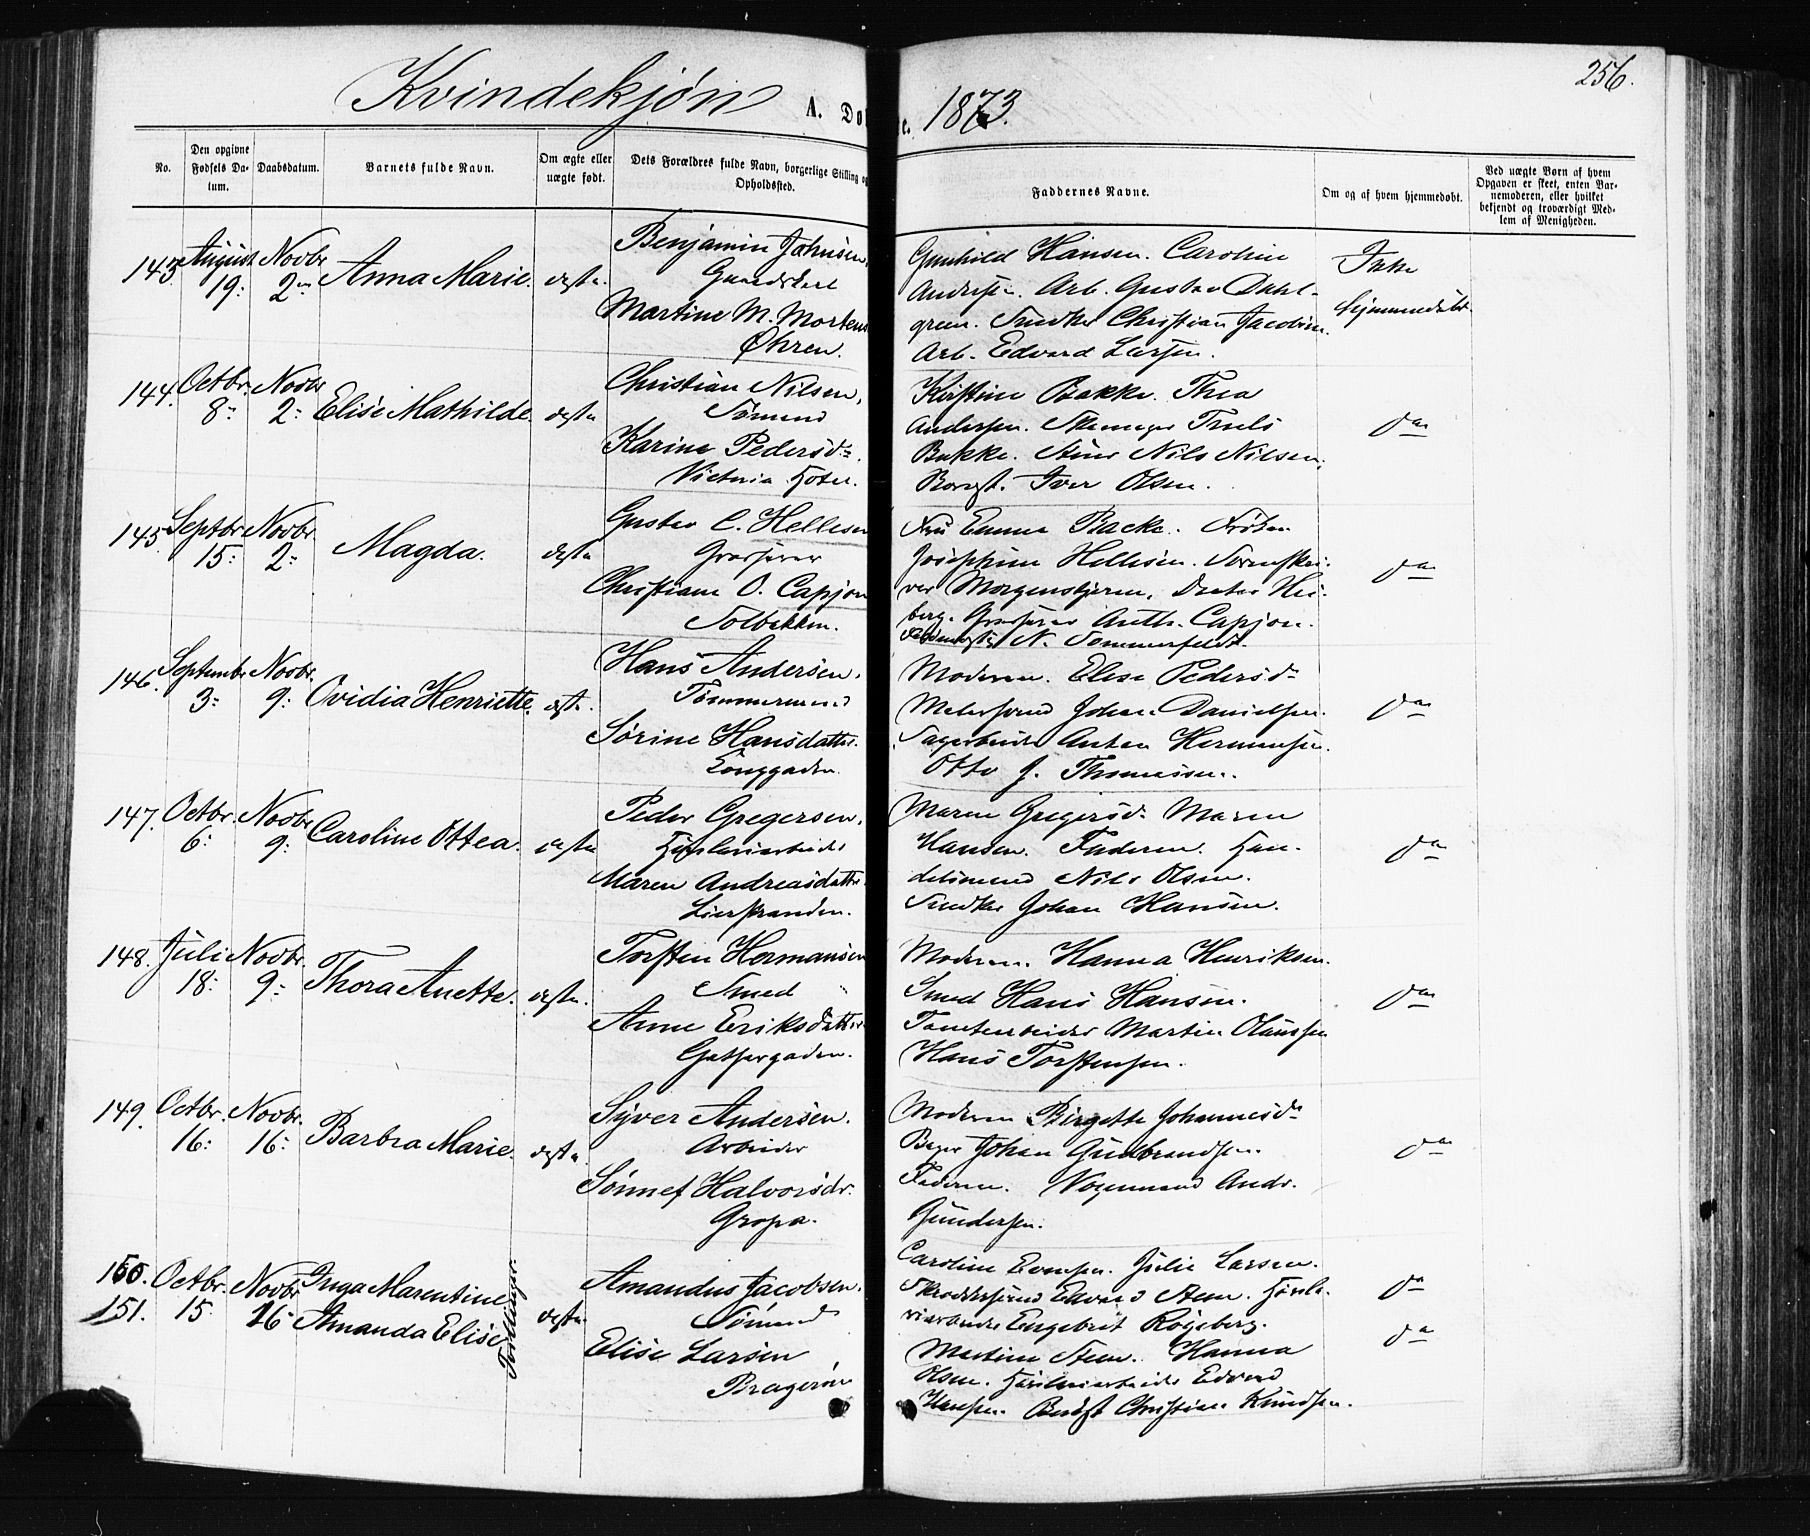 Kvindekjøn
A. Do
e. 1873.
256.
No.
Den opgivne Fødsels Da-
tum.
Daabsdatum.
Barnets fulde Navn.
Om ægte eller
uægte født.
Dets Forældres fulde Navn, borgerlige Stilling og
Opholdssted.
Faddernes Navne.
Om og af hvem hjemmedøbt.
Ved uægte Born af hvem
Opgaven er skeet, enten Bar-
nemoderen, eller hvilket
bekjendt og troværdigt Med-
lem af Menigheden.
143. August 19. Novbr 2. Anna Marie. ægte.
Benjamin Johnsen,
Gaardskarl
Martine M. Mortens
Øhren.
Gunhild Hansen. Caroline
Andersen. Arb. Gustav Dahl-
green. Snedker Christian Jacobsen.
Arb. Edvard Larsen.
Ikke
hjemmedøbt.
144. Octbr. 8. Novbr 2. Elise Mathilde. ægte
Christian Nilsen,
Sømand
Karine Pedersd.
Victoria Hotel.
Kirstine Bakke. Thea
Andersen. Truels
Bakke. Nils Nilsen,
Iver Olsen.
do
145. Septbr 15. Novbr. 2. Magda. ægte
Gustav C. Hellesen
Grosserer
Christiane O. Capjon
Solbakken.
Fru Emma Backe. Frøken
Josephine Hellesen. Sorenskri-
ver Morgenstjerne, Doctor Hei-
berg. Grosserer Anth. Capjon.
N. Sommerfeldt.
do
146. Septembr 3. Novbr. 9. Ovidia Henriette. ægte.
Hans Andersen,
Tømmermand
Sørine Hansdatter.
Langgaden.
Moderen. Elise Pedersd.
Malersvend Johan Danielsen.
Sagarbeider Anton Hermansen.
Otto J. Thomassen.
do
147. Octbr. 6. Novbr 9. Caroline Ottea. ægte
Peder Gregersen,
Høvleriarbeider
Maren Andreasdatter.
Lierstranden.
Maren Gregersd. Maren
Hansen. Faderen. Han-
delsmand Nils Olsen.
Snedker Johan Hansen.
do
148. Juli 18. Novbr. 9. Thora Anette. ægte.
Torsten Hermansen
Smed
Anne Eriksdatter
Gjetergaden.
Moderen. Hanna Henriksen.
Smed Hans Hansen.
Tomtearbeider Martin Olaussen
Hans Torstensen.
do
149. Octbr. 16. Novbr. 16. Barbra Marie. ægte.
Syver Andersen.
Arbeider
Sønnef Halvorsdr.
Gropa.
Moderen Birgitte Johannesd.
Bager Johan Gudbrandsen.
Faderen. Vognmand Andr.
Gundersen.
do
150. Octbr. 15. Novbr 16 Inga Marentine
151. Amanda Elise Tvillinger. ægte.
Amandus Jacobsen.
Sømand
Elise Larsen
Bragerøen
Caroline Evensen. Julie Larsen.
Skræddersvend Edvard Steen. Høvle-
riarbeider Engebret Røgeberg.
Martine Steen. Hanna
Olsen. Høvleriarbeider Edvard
Hansen. Christian Knudsen.
do
do